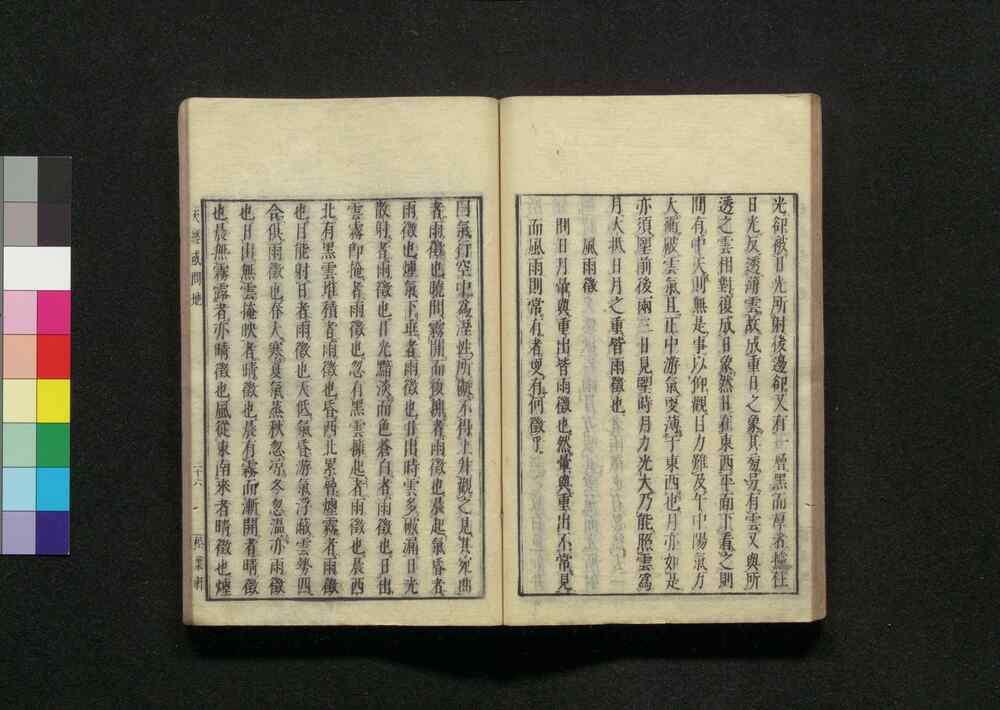 光卻被日光所射後邊卻又有一層黑而厚者攄住
日光反透薄雲故成重日之象其旁易有雲又與所
透之雲相對復成日象然日在東西平面下看之則
間有中天則無是事以仰觀日力難及午中陽氣方
大能破雲氣且正中游氣更薄于東西也月亦如是
亦須望前後兩三日見望時月力光大乃能照雲為
月大抵日月之重皆雨徵也
風雨徵
問日月暈與重出皆雨徵也然暈與重出不常見
而風雨則常有者更有何徵乎
曰氣行空中為溼性所礙不得上升觀之見其宛曲
者雨徵也曉間霧開而復擁者雨徵也晨起氣昏者
雨徵也煙氣下垂者雨徵也日出時雲多破漏日光
散射者雨徵也日光黯淡而色蒼白者雨徵也日出
雲霧即掩者雨徵也忽有黑雲擁起者雨徵也晨西
北有黑雲堆積者雨徵也昏西北累層煙霧者雨徵
也日能射日者雨徵也天低氣昏游氣浮蔽雲勢四
合俱雨徵也春大寒夏氣蒸秋忽涼冬忽溫亦雨徵
也日出無雲掩映者晴徵也晨有霧而漸開者晴徵
也晨無霧露者亦晴徵也風從東南來者晴徵也煙
天經或問地
二十六
松葉軒